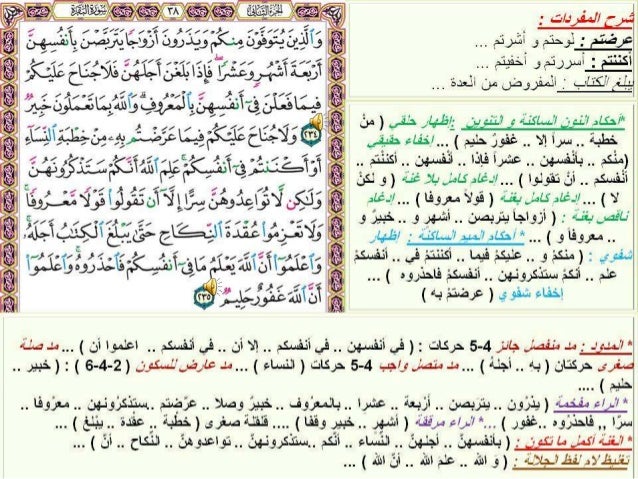 الجزء الثاني ٣٨ سورة البقرة
وَالَّذِينَ يُتَوَفَّوْنَ مِنكُمْ وَيَذَرُونَ أَزْوَاجًا يَتَرَبَّصْنَ بِأَنفُسِهِنَّ
أَرْبَعَةَ أَشْهُرٍ وَعَشْرًا فَإِذَا بَلَغْنَ أَجَلَهُنَّ فَلَا جُنَاحَ عَلَيْكُمْ
فِيمَا فَعَلْنَ فِي أَنفُسِهِنَّ بِالْمَعْرُوفِ وَاللَّهُ بِمَا تَعْمَلُونَ خَبِيرٌ
٢٣٤ وَلَا جُنَاحَ عَلَيْكُمْ فِيمَا عَرَّضْتُم بِهِ مِنْ خِطْبَةِ النِّسَاءِ
أَوْ أَكْنَنتُمْ فِي أَنفُسِكُمْ عَلِمَ اللَّهُ أَنَّكُمْ سَتَذْكُرُونَهُنَّ
وَلَٰكِن لَّا تُوَاعِدُوهُنَّ سِرًّا إِلَّا أَن تَقُولُوا قَوْلًا مَّعْرُوفًا
وَلَا تَعْزِمُوا عُقْدَةَ النِّكَاحِ حَتَّىٰ يَبْلُغَ الْكِتَابُ أَجَلَهُ
وَاعْلَمُوا أَنَّ اللَّهَ يَعْلَمُ مَا فِي أَنفُسِكُمْ فَاحْذَرُوهُ وَاعْلَمُوا
أَنَّ اللَّهَ غَفُورٌ حَلِيمٌ ٢٣٥
شرح المفردات :
عرضتم : لوحتم و أشرتم ...
أكننتم : أسررتم و أخفيتم ...
يبلغ الكتاب : المفروض من العدة ...
*أحكام النون الساكنة و التنوين :إظهار حلقي ( منْ
خطبة .. سراً إلا .. غفورٌ حليم ) ... إخفاء حقيقي
(منكم .. بأنفسهن .. عشراً فإذا .. أنفسهن .. أكننتم ..
أنفسكم .. أنْ تقولوا ) ... إدغام كامل بلا غنة ( و لكنْ
لا ) ... إدغام كامل بغنة ( قولاً معروفا ) ... إدغام
ناقص بغنة : ( أزواجاً يتربصن .. أشهرٍ و .. خبيرٌ و
.. معروفاً و ) ... * أحكام الميم الساكنة : إظهار
شفوي : ( منكمْ و .. عليكمْ فيما .. أكننتمْ في .. أنفسكمْ
علم .. أنكمْ ستذكرونهن .. أنفسكمْ فاحذروه ) ...
إخفاء شفوي ( عرضتمْ به )
* المدود : مد منفصل جائز 4-5 حركات : ( في أنفسهن .. في أنفسكم .. إلا أن .. في أنفسكم .. اعلموا أن ) ... مد صلة
صغرى حركتان ( به .. أجله ) ... مد متصل واجب 4-5 حركات ( النساء ) ... مد عارض للسكون ( 2-4-6 ) : ( خبير ..
حليم ) ....
* الراء مفخمة ( يذرُون .. يتربصن .. أرْبعة .. عشرا .. بالمعرُوف .. خبيرٌ وصلا .. عرّضتم ..ستذكرُونهن .. معرُوفا ..
سرًّا .. فاحذرُوه ..غفور ) ...* الراء مرققة ( أشهرٍ .. خبير وقفا ) .... قلقلة صغرى ( خطْبة .. عقْدة .. يبْلغ ) ...
* الغنة أكمل ما تكون : ( بأنفسهنّ .. أجلهنّ .. النّساء .. أنّكم ..ستذكرونهنّ .. تواعدوهنّ .. النّكاح .. أنّ ) ...
تغليظ لام لفظ الجلالة : ( و الله .. علمَ الله .. أنَّ الله ) ...